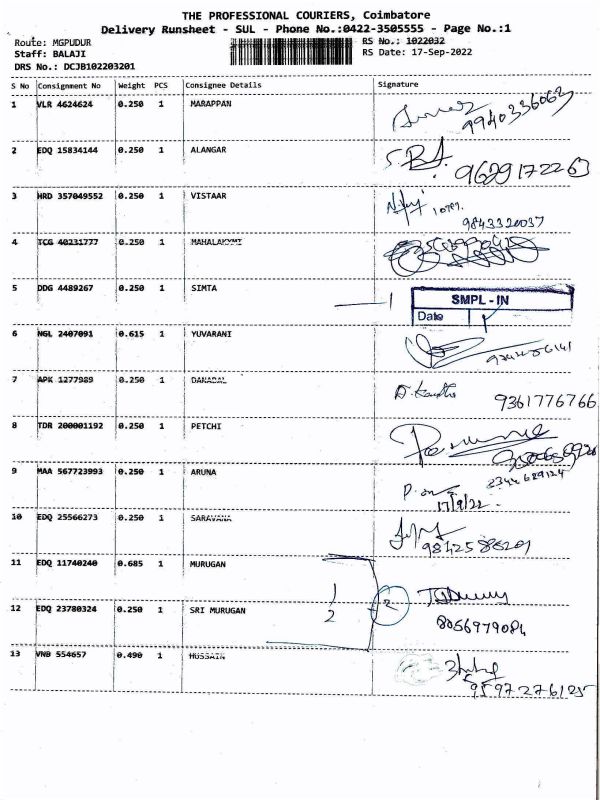 THE PROFESSIONAL COURIERS, Coimbatore
Delivery Runsheet - SUL - Phone No.:0422-3505555 - Page No.:1
Route: MGPUDUR RS No.: 1022032
Staff: BALAJI RS Date: 17-Sep-2022
DRS No.: DCJB102203201
S No Consignment No Weight PCS Consignee Details Signature
1 VLR 4624624 0.250 1 MARAPPAN
9940336063
2 EDQ 15834144 0.250 1 ALANGAR
9629172263
3 HRD 357049552 0.250 1 VISTAAR
9843320037
4 TCG 40231777 0.250 1 MAHALAXMI
5 DDG 4489267 0.250 1 SIMTA
SMPL - IN
Date
6 NGL 2407091 0.615 1 YUVARANI
7 APK 1277989 0.250 1 DANABAL
9361776766
8 TDR 200001192 0.250 1 PETCHI
9 MAA 567723993 0.250 1 ARUNA
17/9/22
10 EDQ 25566273 0.250 1 SARAVANA
11 EDQ 11740240 0.685 1 MURUGAN
1
2
2
12 EDQ 23780324 0.250 1 SRI MURUGAN
8056979084
13 VNB 554657 0.490 1 HUSSAIN
9597276125